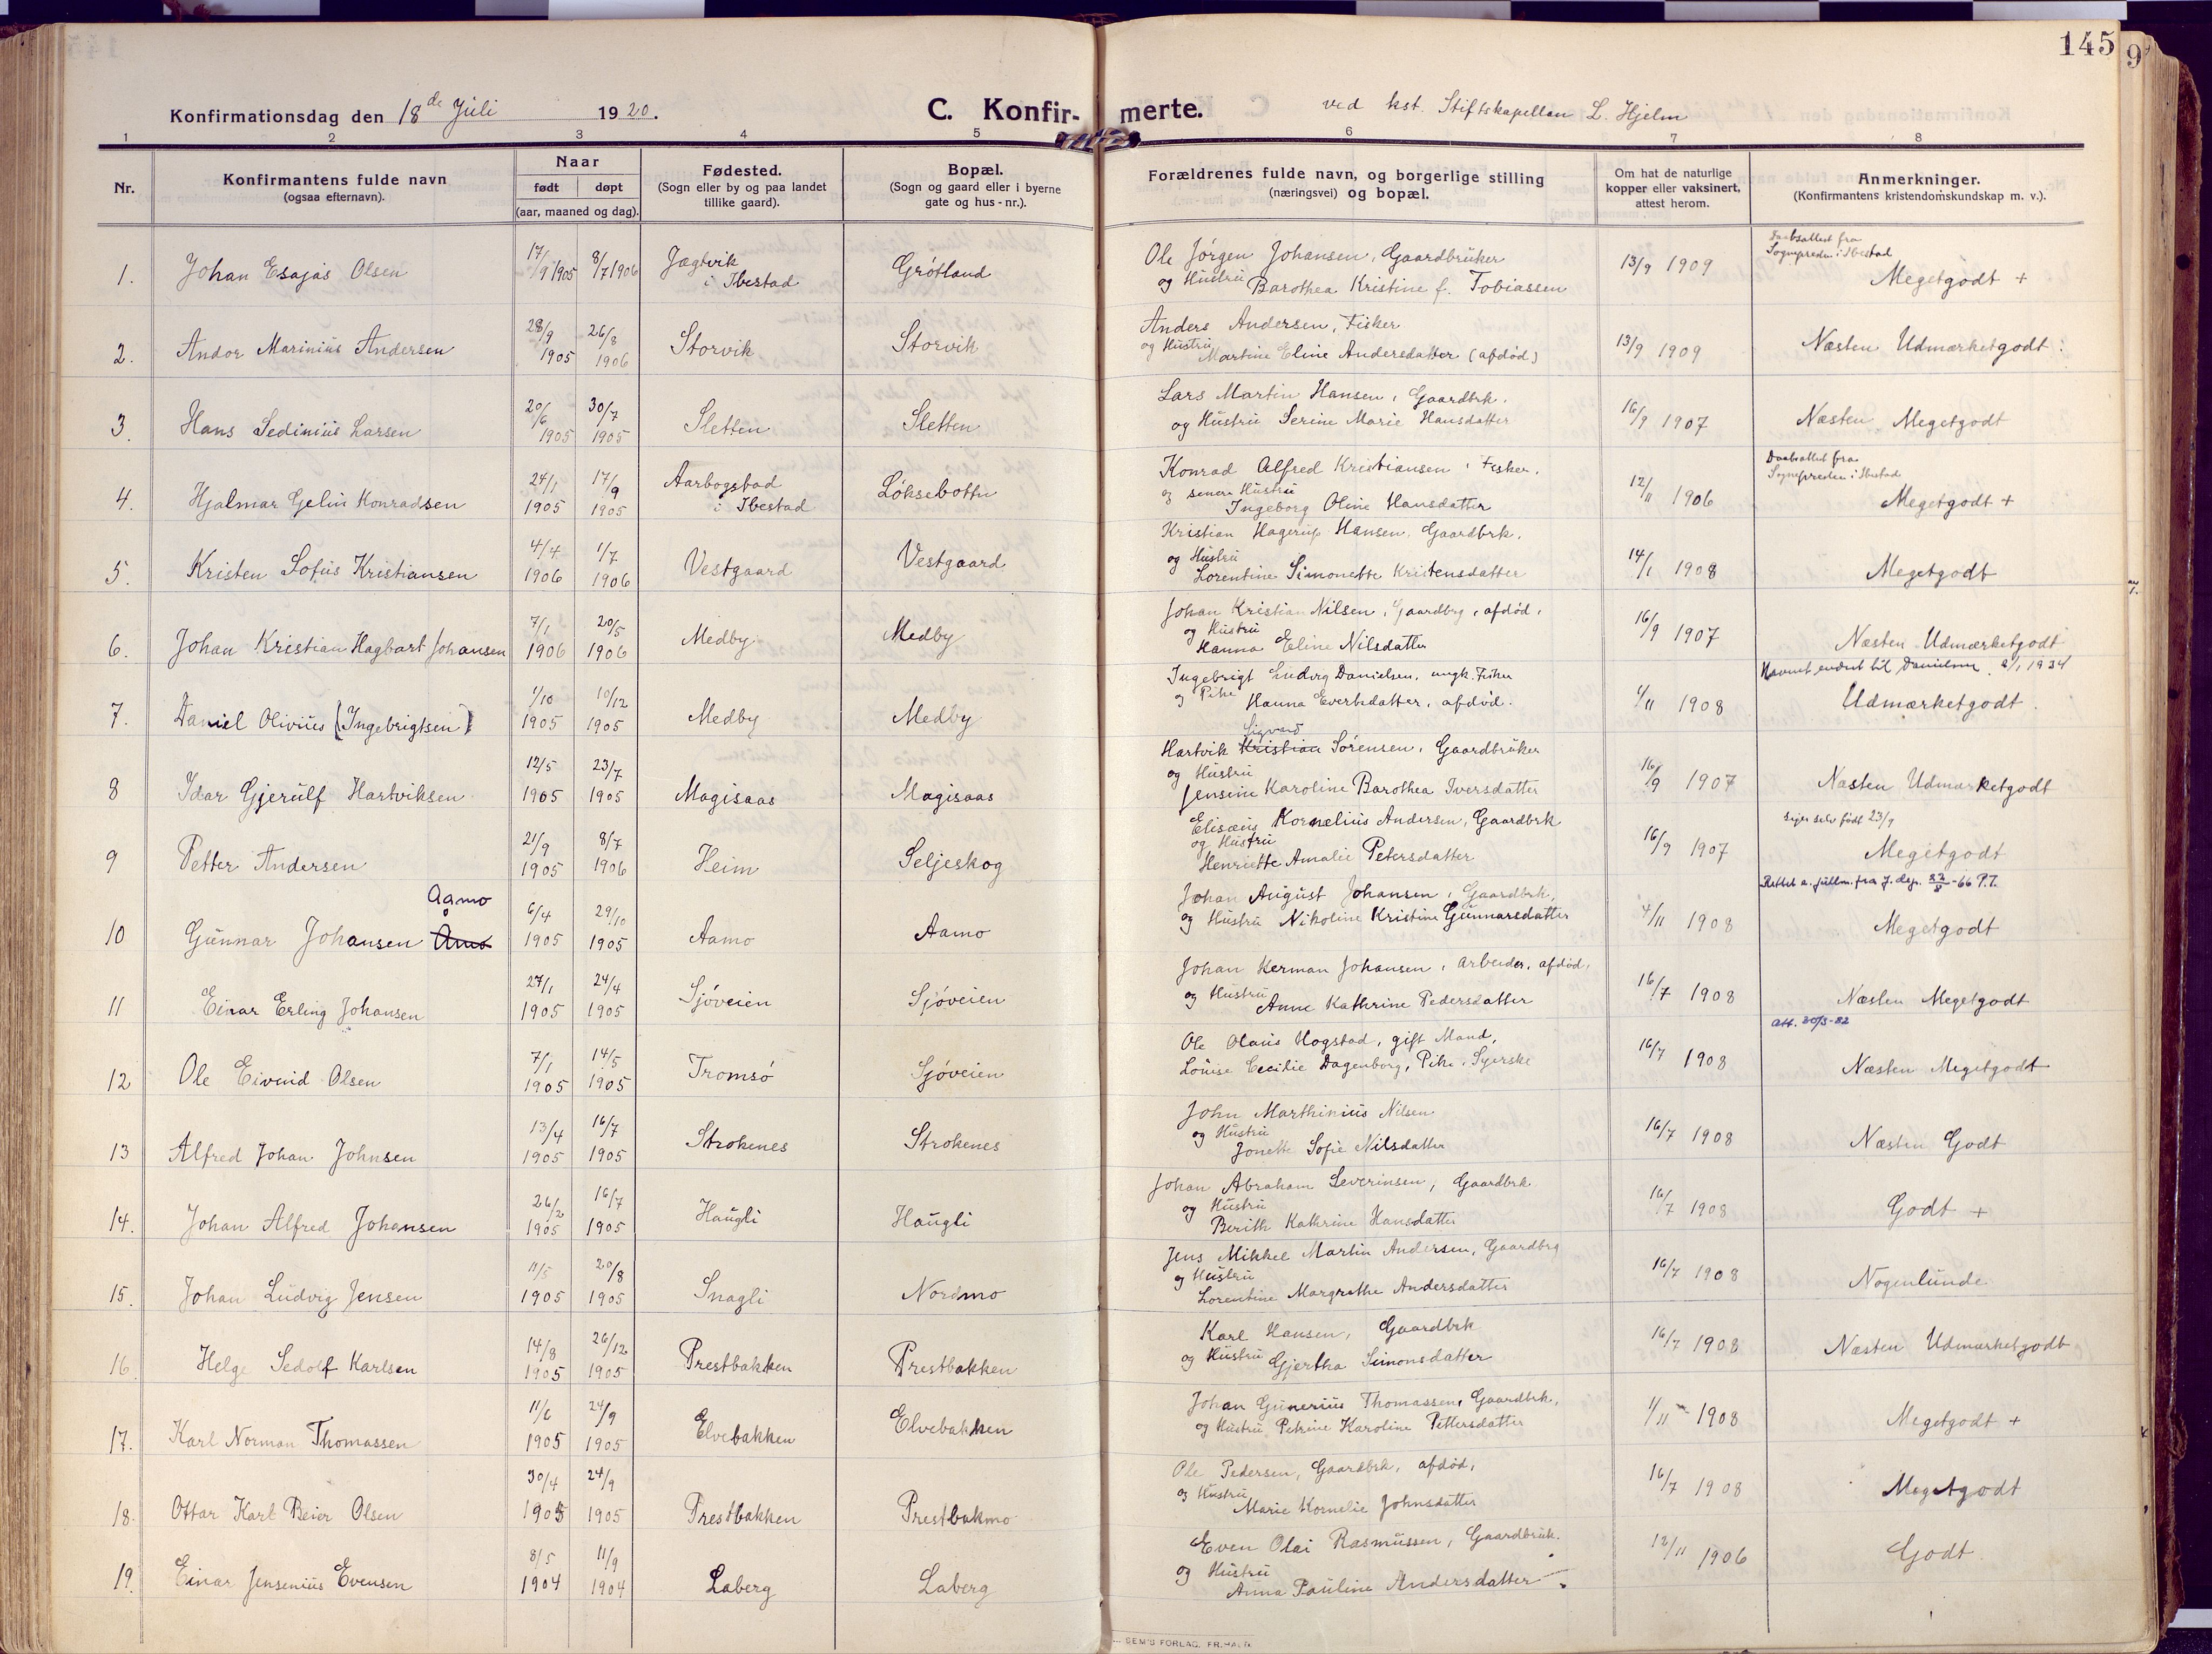 145
9
Konfirmationsdag den 18de Juli 1920.
C. Konfir- merte.
ved kst. Stiftskapellan L. Hjelm
1 2 3 4 5 6 7 8
Nr.
Konfirmantens fulde navn
(ogsaa efternavn).
Naar
født døpt
(aar, maaned og dag).
Fødested.
(Sogn eller by og paa landet
tillike gaard).
Bopæl.
(Sogn og gaard eller i byerne
gate og hus - nr.).
Forældrenes fulde navn, og borgerlige stilling
(næringsvei) og bopæl.
Om hat de naturlige
kopper eller vaksinert,
attest herom.
Anmerkninger.
(Konfirmantens kristendomskundskap m. v.).
1. Johan Esajas Olsen 17/9 1905 8/7 1906 Jægtvik
i Ibestad Grótland
Ole Jórgen Johansen, Gaardbruker
og Hustru Barothea Kristine f. Tobiassen
13/9 1909
Sognepresten i Ibestad
Megetgodt +
2. Andor Marinius Andersen 28/9 1905 26/8 1906 Storvik Storvik
Anders Andersen, Fisker
og Hustru Martine Eline Andersdatter (afdód)
13/9 1909 Næsten Udmærketgodt.
3. Hans Sedinius Larsen 20/6 1905 30/7 1905 Sletten Sletten
Lars Martin Hansen, Gaardbrk.
og Hustru Serine Marie Hansdatter
16/9 1907 Næsten Megetgodt
4. Hjalmar Gelin Konradsen 24/1 1905 17/9 1905 Aarbogstad
i Ibestad Lóksebotn
Konrad Alfred Kristiansen, Fisker.
og senere Hustru
Ingeborg Oline Hansdatter
12/11 1906
Daabsattest fra
Sognepresten i Ibestad
Megetgodt +
5. Kristen Sofus Kristiansen 4/4 1906 1/7 1906 Vestgaard Vestgaard
Kristian Hagerup Hansen, Gaardbrk.
og Hustru
Lorentine Simonette Kristensdatter
14/1 1908 Megetgodt
6. Johan Kristian Hagbart Johansen 7/1 1906 20/5 1906 Medby Medby
Johan Kristian Nilsen, Gaardbrg, afdód,
og Hustru
Hanna Eline Nilsdatter
16/9 1907 Næsten Udmærketgodt
7. Daniel Olivius (Ingebrigtsen) 1/10 1905 10/12 1905 Medby Medby
Ingebrigt Ludvig Danielsen, ungk. Fisker
og Pike Hanna Evertsdatter, afdód.
1/11 1908
Navnet endret til Danielsen 1934
Udmærketgodt.
8 Idar Gjerulf Hartviksen 12/5 1905 23/7 1905 Magisaas Magisaas
Sigvard
Hartvik Kristian Sórensen, Gaardbruker
og Hustru
Jensine Karoline Barothea Iversdatter
16/9 1907 Næsten Udmærketgodt
9 Petter Andersen 21/9 1905 8/7 1906 Heim Seljeskog
Elisæus Kornelius Andersen, Gaardbrk
og Hustru
Henriette Amalie Petersdatter
16/9 1907
siger selv født 23/9
Megetgodt
10 Gunnar Johansen Aamo Åmo 6/4 1905 29/10 1905 Aamo Aamo
Johan August Johansen, Gaardbrk,
og Hustru Nikoline Kristine Gunnarsdatter
4/11 1908
Rettet a. fra J. dep. 22/8-66 P.T.
Megetgodt
11 Einar Erling Johansen 27/1 1905 24/4 1905 Sjóveien Sjóveien
Johan Herman Johansen, Arbeider, afdód,
og Hustru
Anne Kathrine Pedersdatter
16/7 1908 Næsten Megetgodt
12 Ole Eivind Olsen 7/1 1905 14/5 1905 Tromsó Sjóveien
Ole Olaus Hogstad, gift Mand,
Louise Cecilie Dagenborg, Pike, Syerske
16/7 1908
Att. 30/3-82
Næsten Megetgodt
13 Alfred Johan Johnsen 13/4 1905 16/7 1905 Strokenes Strokenes
John Marthinius Nilsen
og Hustru
Jonette Sofie Nilsdatter
16/7 1908 Næsten Godt
14. Johan Alfred Johansen 26/2 1905 16/7 1905 Haugli Haugli
Johan Abraham Severinsen, Gaardbrk
og Hustru
Berith Kathrine Hansdatter
16/7 1908 Godt +
15. Johan Ludvig Jensen 11/5 1905 20/8 1905 Snagli Nordmo
Jens Mikkel Martin Andersen, Gaardbrg
og Hustru
Lorentine Margrethe Andersdatter
16/7 1908 Nogenlunde.
16. Helge Sedolf Karlsen 14/8 1905 26/12 1905 Prestbakken Prestbakken
Karl Hansen, Gaardbrk
og Hustru Gjertha Simonsdatter
16/7 1908 Næsten Udmærketgodt
17. Karl Norman Thomassen 11/6 1905 24/9 1905 Elvebakken Elvebakken
Johan Gunerius Thomassen, Gaardbrk,
og Hustru Petrine Karoline Pettersdatter
1/11 - 1908 Megetgodt +
18. Ottar Karl Beier Olsen 30/4 1905 24/9 1905 Prestbakken Prestbakmo
Ole Pedersen, Gaardbrk, afdód,
og Hustru
Marie Kornelie Johnsdatter
16/7 1908 Megetgodt
19. Einar Jensenius Evensen 8/5 1904 11/9 1904 Laberg Laberg
Even Olai Rasmussen, Gaardbruk.
og Hustru
Anna Pauline Andersdatter
12/11 1906 Godt.
SEM'S FORLAG, FR.HALD.